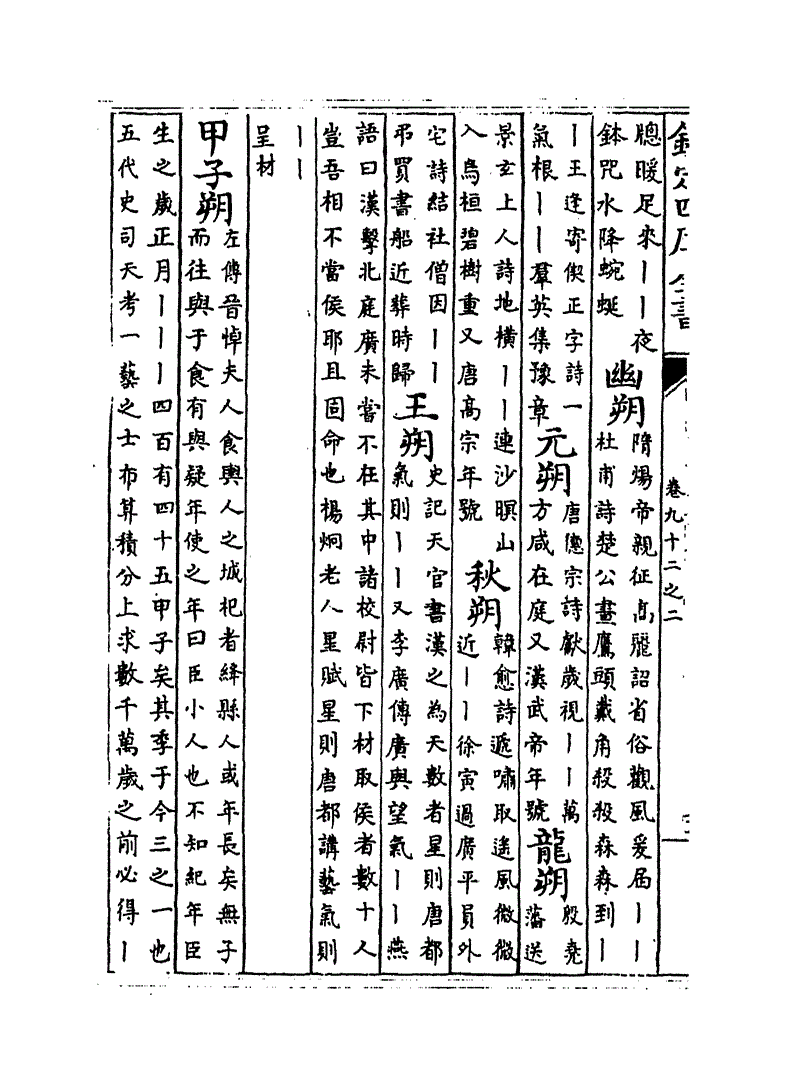 欽定四庫全書
卷九十二之二
聦暖足來丨丨夜
鉢咒水降蜿蜒
幽朔
隋煬帝親征高麗詔省俗觀風爰屆丨丨
杜甫詩楚公畫鷹頭戴角殺殺森森到丨
丨王逢寄偰正字詩一
氣根丨丨羣英集豫章
元朔
唐德宗詩獻歲視丨丨萬
方咸在庭又漢武帝年號
龍朔
殷堯
藩送
景玄上人詩地橫丨丨連沙暝山
入烏桓碧樹重又唐高宗年號
秋朔
韓愈詩遞嘯取遙風微微
近丨丨徐寅過廣平員外
宅詩結社僧因丨丨
弔買書船近葬時歸
王朔
史記天官書漢之為天數者星則唐都
氣則丨丨又李廣傳廣與望氣丨丨燕
語曰漢擊北庭廣未嘗不在其中諸校尉皆下材取侯者數十人
豈吾相不當侯耶且固命也楊炯老人星賦星則唐都講藝氣則
丨丨
呈材
甲子朔
左傳晉悼夫人食輿人之城杞者絳縣人或年長矣無子
而往與于食有與疑年使之年曰臣小人也不知紀年臣
生之歲正月丨丨丨四百有四十五甲子矣其季于今三之一也
五代史司天考一藝之士布算積分上求數千萬歲之前必得丨